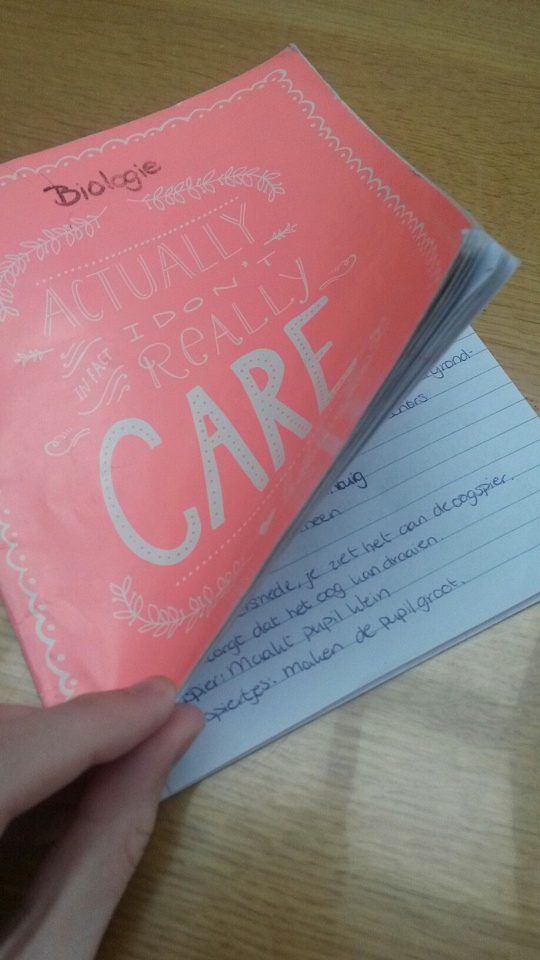 Biologie
ACTUALLY
I DON'T
IN FACT
REALLY
CARE
grond-
een
je ziet het aan de oogspier.
dat het oog kan draaien.
spier: Maakt pupil klein
spiertjes: maken de pupil groot.